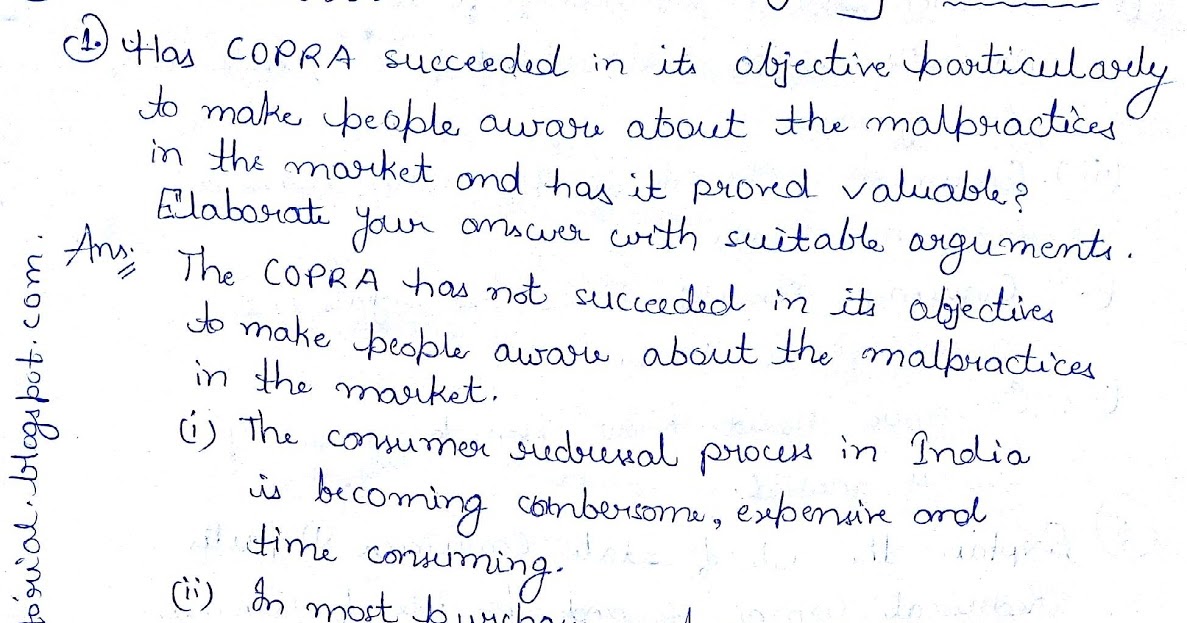 1. Has COPRA succeeded in its objective particularly
to make people aware about the malpractices
in the market and has it proved valuable?
Elaborate your answer with suitable arguments.
Ans: The COPRA has not succeeded in its objectives
to make people aware about the malpractices
in the market.
(i) The consumer redressal process in India
is becoming combersome, expensive and
time consuming.
(ii) In most
.blogspot.com.